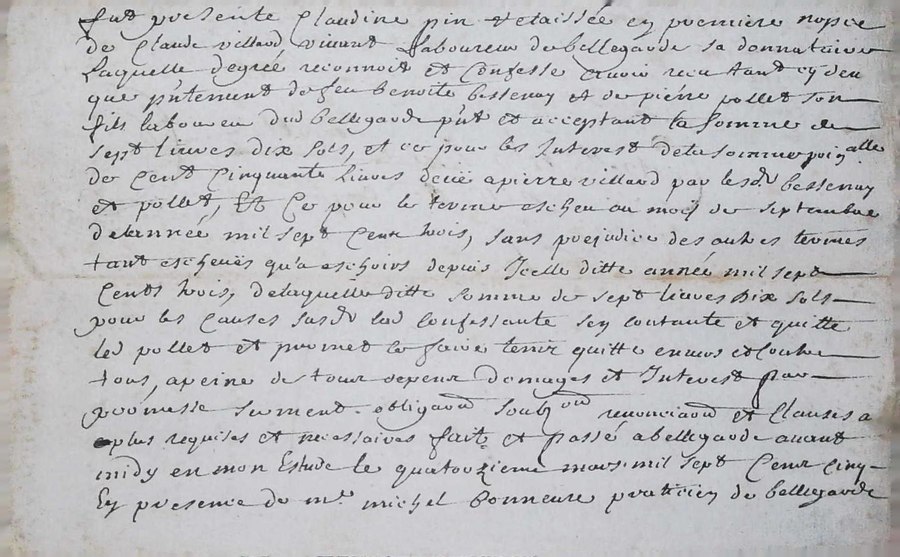 fut presente Claudine pin delaissée en premiere nopce
de Claude villard vivant laboureur de bellegarde sa donnataire
laquelle degrée reconnoit et Confesse avoir recu tant cy deu
que p'ntement de feu benoite bessenay et de pierre pollet son
fils laboureu dud bellegarde p'nt et acceptant la somme de
sept livres dix sols, et ce pour les Interest de la somme prin alle
de Cent Cinquante livres deüe a pierre villard par lesd bessenay
et pollet, Et Ce pour le terme escheu au mois de septembre
de lannée mil sept Cent trois, sans prejudice des autres termes
tant escheües qu'a eschoirs depuis Icelle ditte année mil sept
Cents trois, de laquelle ditte somme de sept livres dix sols
pour les Causes susd lad Confessante sen contante et quitte
led pollet et promet le faire tenir quitte envers et Contre
tous, a peine de tour depens Domages et Interest par
promesse serment obligaōn soub[...]on renonciaōn et Clauses a
plus requises et necessaires fait et passé a bellegarde avant
midy en mon Estude le quatorzieme mars mil sept Cent Cinq
En presence de me michel bonneure praticien de bellegarde